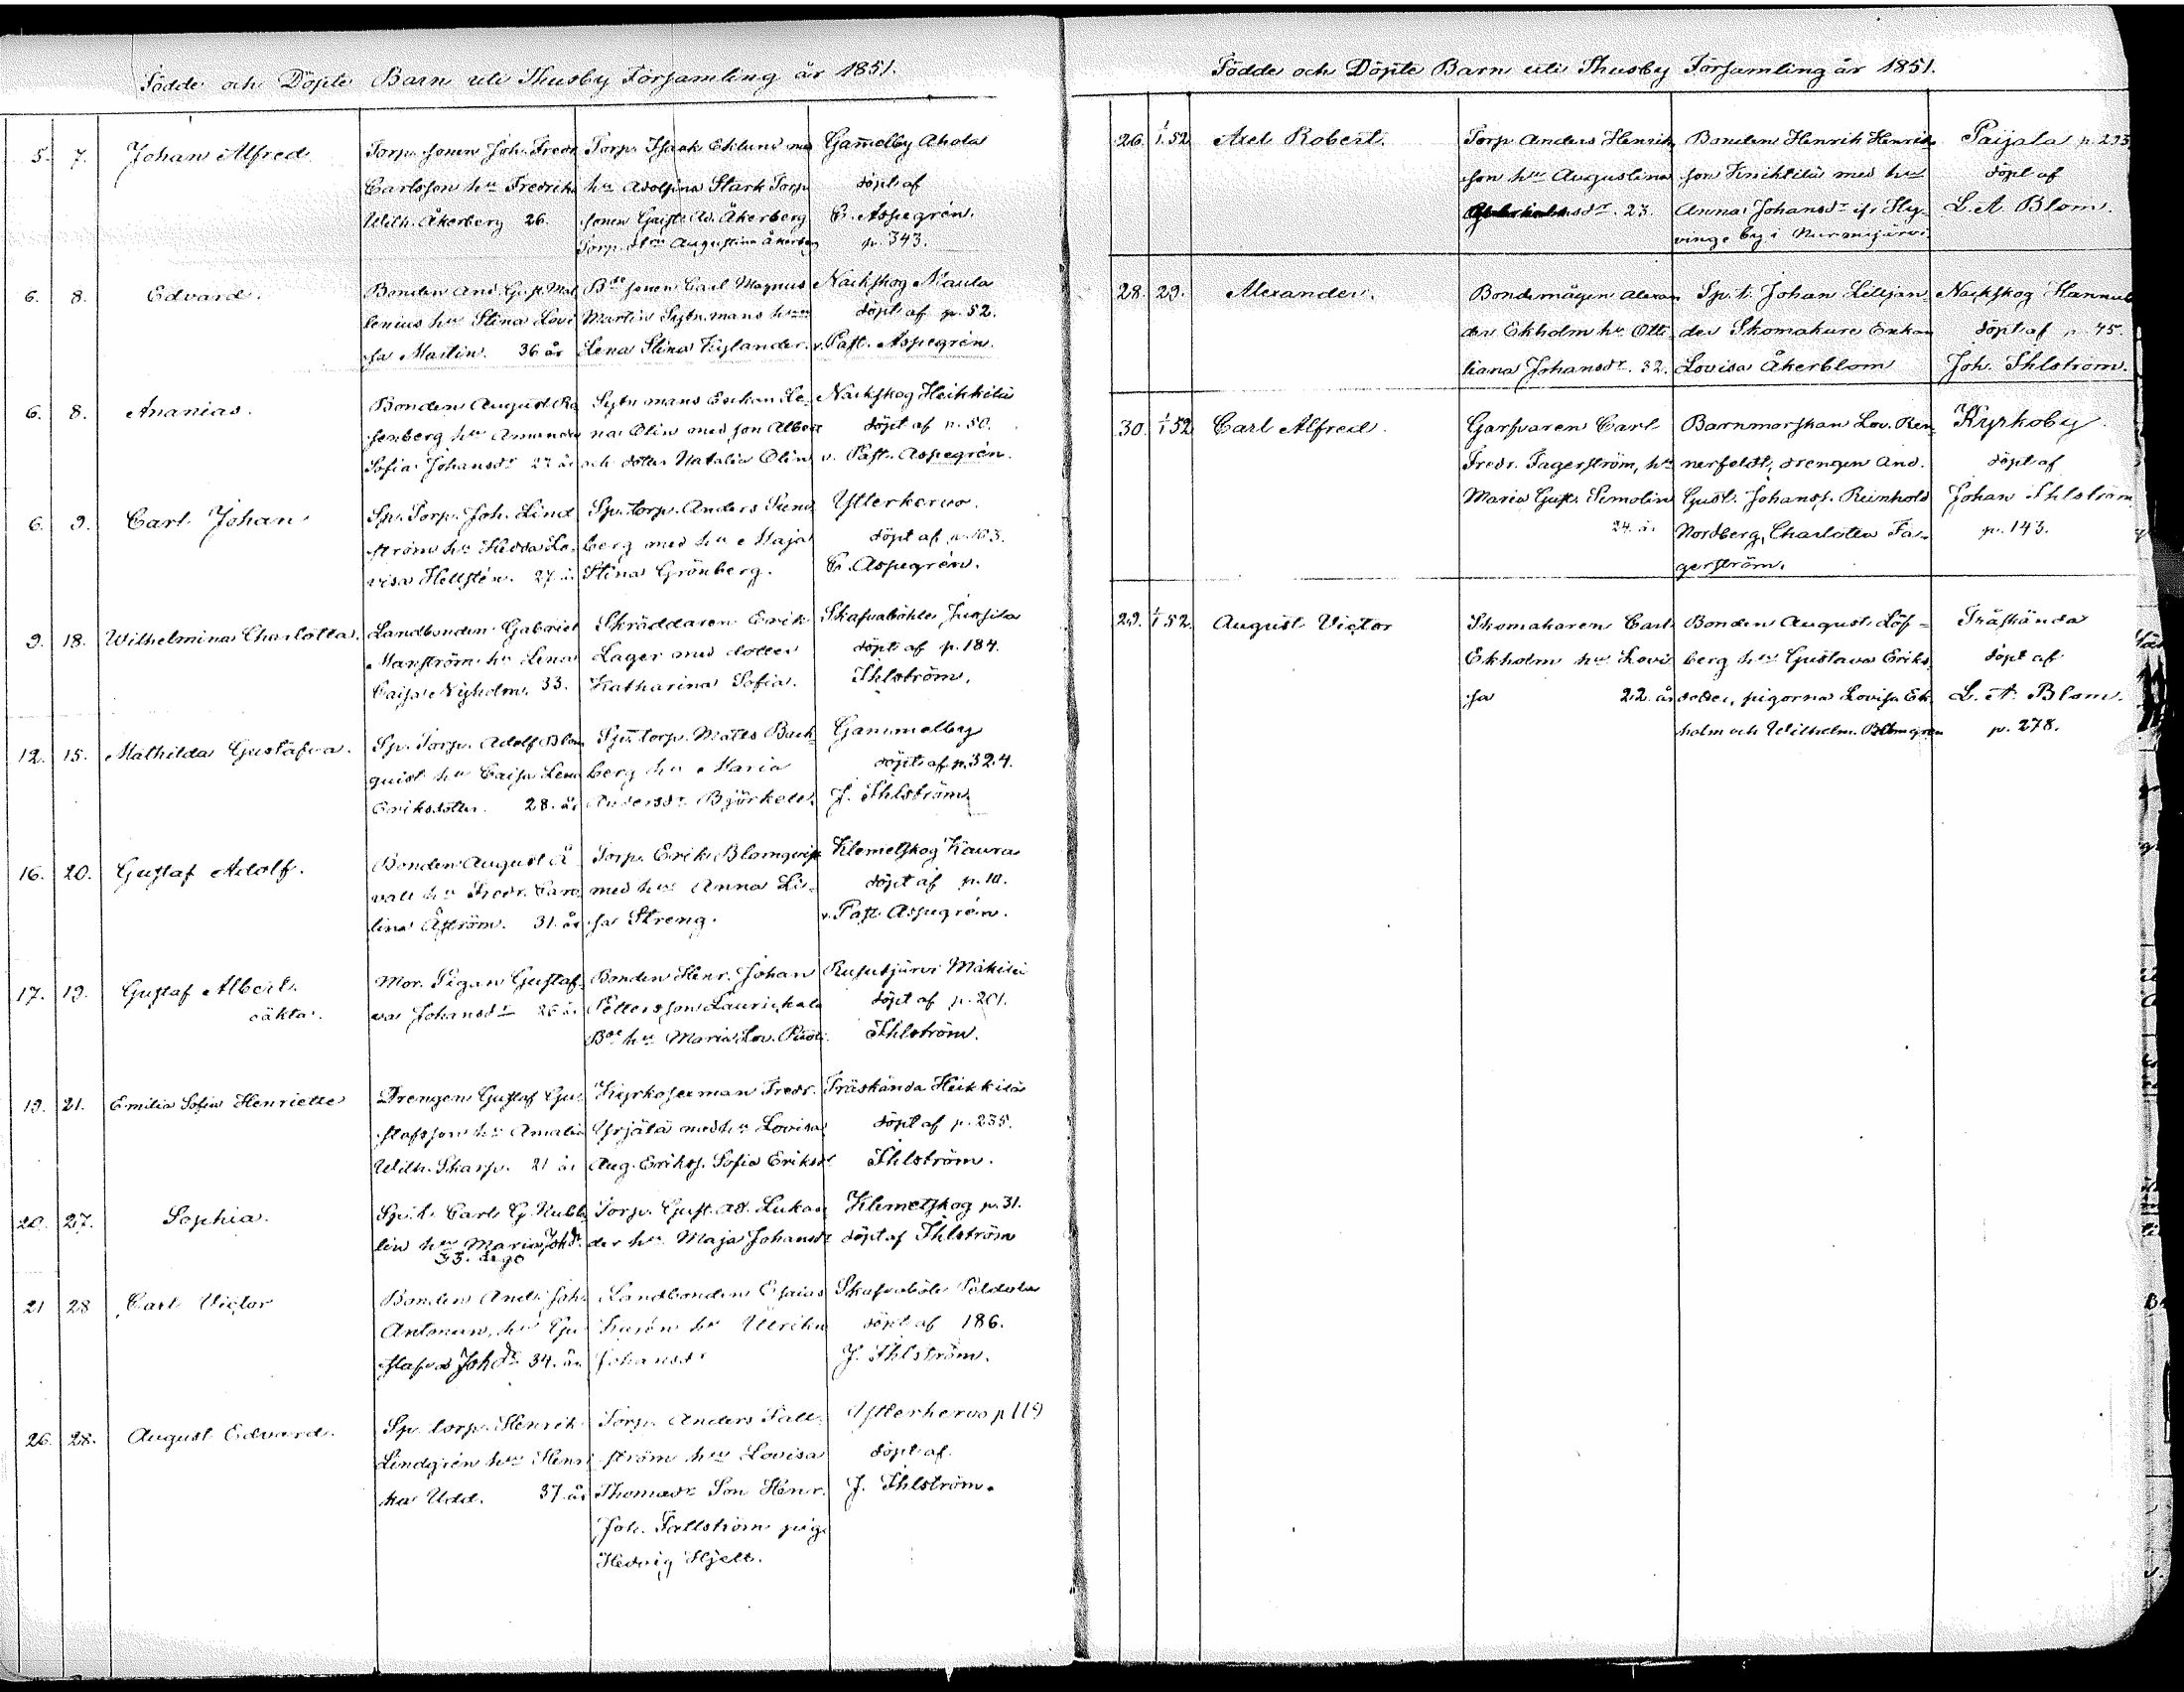 Födde och Döpte Barn uti Thusby Församling år 1851.
5. 7. Johan Alfred
Torp. sonen Joh. Fredr
Carlsson hu Fredrika
Wilh. Åkerberg 26.
Torp. Isaak Eklund med
hu Adolfina Stark Torp
sonen Gust. Ad. Åkerberg
Torp. Augustina Åkerberg
Gamelby Ahola
döpt af
C. Aspegrén.
p. 343.
6. 8. Edvard.
Bonden And. Gust. Mal
lenius hu Stina Lovi
sa Martin. 36 år
Bde sonen Carl Magnus
Martin Sytn. mans
Lena Stina Kylander.
Nackskog Maula
döpt af p. 52.
v. Past. Aspegrén.
6. 8. Ananias.
Bonden August Ro
senberg hu Amanda
Sofia Johansdr 27 år
Sytn mans Enkan Le-
na Olin med son Albert
och dotter Natalia Olin
Nackskog Heikkilä
döpt af p. 50.
v. Past. Aspegrén.
6. 9. Carl Johan
Sp. Torp. Joh. Lind
ström hu Hedda Lo-
visa Hellstén. 27 år
Sp. torp. Anders Sund
berg med hu Maja
Stina Grönberg.
Ytterkervo.
döpt af p. 103.
C. Aspegrén.
9. 18. Wilhelmina Charlotta.
Landbonden Gabriel
Manström hu Lena
Caisa Nyholm. 33.
Skräddaren Erik
Lager med dotter
Katharina Sofia.
Skafvaböhle Jussila
döpt af p. 184.
Ihlström.
12. 15. Mathilda Gustafva.
Sp. Torp. Adolf Blom
quist hu Caisa Lena
Eriksdotter. 28. år
Sp. torp. Matts Back
berg hu Maria
Andersdr Björkell.
Gammelby
döpt af p. 324.
J. Ihlström.
16. 20. Gustaf Adolf.
Bonden August Å
vall hu Fredr. Caro
lina Åström. 31. år
Torp. Erik Blomqvist
med hu Anna Li-
sa Streng.
Klemetskog Kaura
döpt af p. 10.
v. Past. Aspegrén.
17. 19. Gustaf Albert.
oäkta.
Mor. Pigan Gustaf
va Johansdr 25 år
Bonden Henr. Johan
Pettersson Laurickala
Bde hu Maria Lov.
Rusutjärvi Mäkilä
döpt af p. 201.
Ihlström.
19. 21. Emilia Sofia Henriette
Drengen Gustaf Gu-
stafsson hu Amalia
Wilh. Skarp. 21 år
Kyrkosexman Fredr.
Yrjälä med hu Lovisa
Aug. Eriks. Sofia Eriksdr
Träskända Heikkilä
döpt af p. 235.
Ihlström.
20. 27. Sophia.
Sp. t. Carl G. Nubb
lin hu Maria Johdr
33. år
Torp. Gust. Ad. Lukan
der hu Maja Johansdr
Klemetskog p. 31.
döpt af Ihlström
21 28 Carl Victor
Bonden And. Joh.
Antman, hu Gu
stafva Johdr 34. år
Landbonden Esaias
hu Ulrika
Johansdr
Skafvaböle Päldola
döpt af 186.
J. Ihlström.
26. 28. August Edvard.
Sp torp. Henrik
Lindgrén hu Henri
ka Udd. 37. år
Torp. Anders Fall-
ström hu Lovisa
Thomasdr Son Henr.
Joh. Fallström pig.
Hedvig Hjelt.
Ytterkervo p 119
döpt af
J. Ihlström.
Födde och Döpte Barn uti Thusby Församling år 1851.
26. 1/1. 52 Axel Robert.
Torp Anders Henrik
son hu Augustina
23.
Bonden Henrik Henrik
son Knihtilä med hu
Anna Johansdr ifr. Hy-
vinge by i Nurmijärvi.
Paijala p. 293
döpt af
L. A. Blom.
28. 29. Alexander.
Bondemågen Alexan
der Ekholm hu Otti
liana Johansdr. 32.
Sp. t. Johan Lilljan
der Skomakare Enkan
Lovisa Åkerblom
Nackskog Hannul
döpt af p. 45.
Joh. Ihlström.
30. 1/1 52 Carl Alfred.
Garfvaren Carl
Fredr. Fagerström, hu
Maria Gust. Simolin
24. år
Barnmorskan Lov. Ren
nerfeldt, drengen And.
Gust. Johanss. Reinhold
Nordberg, Charlotta Fa-
gerström.
Kyrkoby
döpt af
Johan Ihlström
p. 143.
29. 1/1 52. August Victor
Skomakaren Carl
Ekholm hu Lovi
sa 22. år
Bonden August Löf-
berg hu Gustava Eriks
dotter, pigorna Lovisa Ek
holm och Wilhelm. Blomgren
Träskända
döpt af
L. A. Blom.
p. 278.